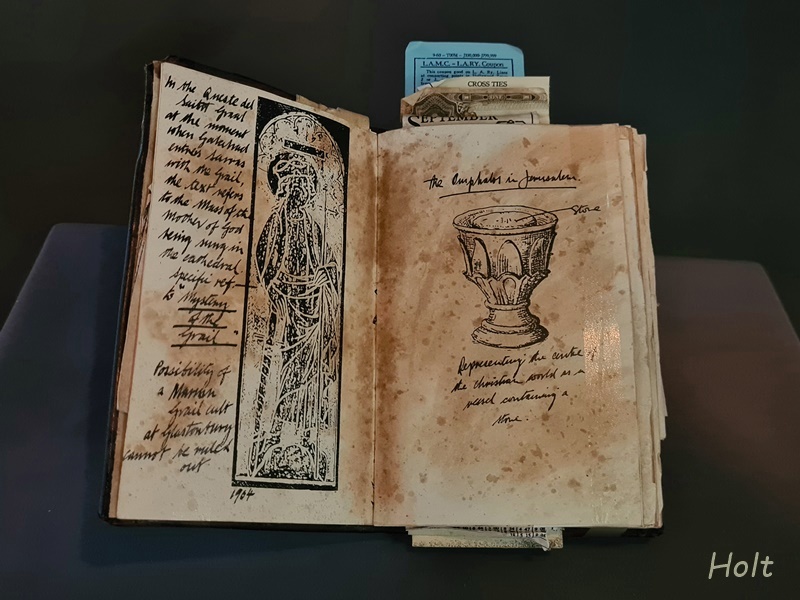 In the Queste del
Saint Graal
at the moment
when Galahad
enters Sarras
with the Grail,
the text refers
to the Mass of the
Mother of God
being sung in
the cathedral
specific ref—
to "Mystery
of the
Grail"
Possibility of
a Marian
Grail cult
at Glastonbury
cannot be ruled
out
1904
L.A.M.C. - L.A.RY. Coupon
This coupon good on L. A. Ry. Lines
CROSS TIES
SEPTEMBER
the Omphalos in Jerusalem.
Stone
Representing the centre of
the christian world as a
vessel containing a
stone.
Holt